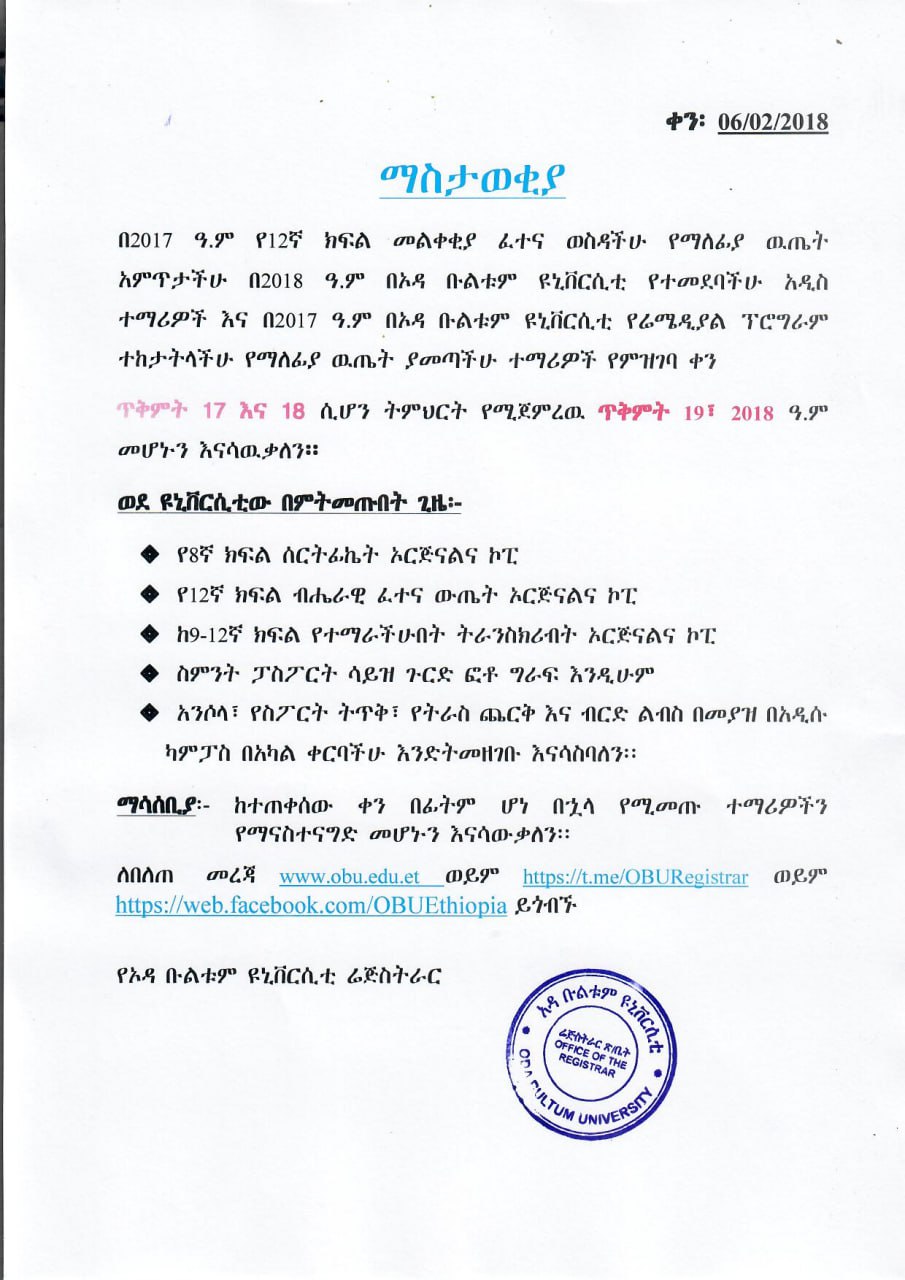 ቀን፡ 06/02/2018
ማስታወቂያ
በ2017 ዓ.ም የ12ኛ ክፍል መልቀቂያ ፈተና ወስዳችሁ የማለፊያ ዉጤት
አምጥታችሁ በ2018 ዓ.ም በኦዳ ቡልቱም ዩኒቨርሲቲ የተመደባችሁ አዲስ
ተማሪዎች እና በ2017 ዓ.ም በኦዳ ቡልቱም ዩኒቨርሲቲ የሬሜዲያል ፕሮግራም
ተከታትላችሁ የማለፊያ ዉጤት ያመጣችሁ ተማሪዎች የምዝገባ ቀን
ጥቅምት 17 እና 18 ሲሆን ትምህርት የሚጀምረዉ ጥቅምት 19፣ 2018 ዓ.ም
መሆኑን እናሳዉቃለን።
ወደ ዩኒቨርሲቲው በምትመጡበት ጊዜ፡-
❖ የ8ኛ ክፍል ሰርትፊኬት ኦርጅናልና ኮፒ
❖ የ12ኛ ክፍል ብሔራዊ ፈተና ውጤት ኦርጅናልና ኮፒ
❖ ከ9-12ኛ ክፍል የተማራችሁበት ትራንስክሪብት ኦርጅናልና ኮፒ
❖ ስምንት ፓስፖርት ሳይዝ ጉርድ ፎቶ ግራፍ እንዲሁም
❖ አንሶላ፣ የስፖርት ትጥቅ፣ የትራስ ጨርቅ እና ብርድ ልብስ በመያዝ በአዲሱ
ካምፓስ በአካል ቀርባችሁ እንድትመዘገቡ እናሳስባለን፡፡
ማሳሰቢያ፡- ከተጠቀሰው ቀን በፊትም ሆነ በኋላ የሚመጡ ተማሪዎችን
የማናስተናግድ መሆኑን እናሳውቃለን፡፡
ለበለጠ መረጃ www.obu.edu.et ወይም https://t.me/OBURegistrar ወይም
https://web.facebook.com/OBUEthiopia ይጎብኙ
የኦዳ ቡልቱም ዩኒቨርሲቲ ሬጅስትራር
ኦዳ ቡልቱም ዩኒቨርሲቲ
ሬጅስትራር ጽ/ቤት
OFFICE OF THE
REGISTRAR
ODA BULTUM UNIVERSITY